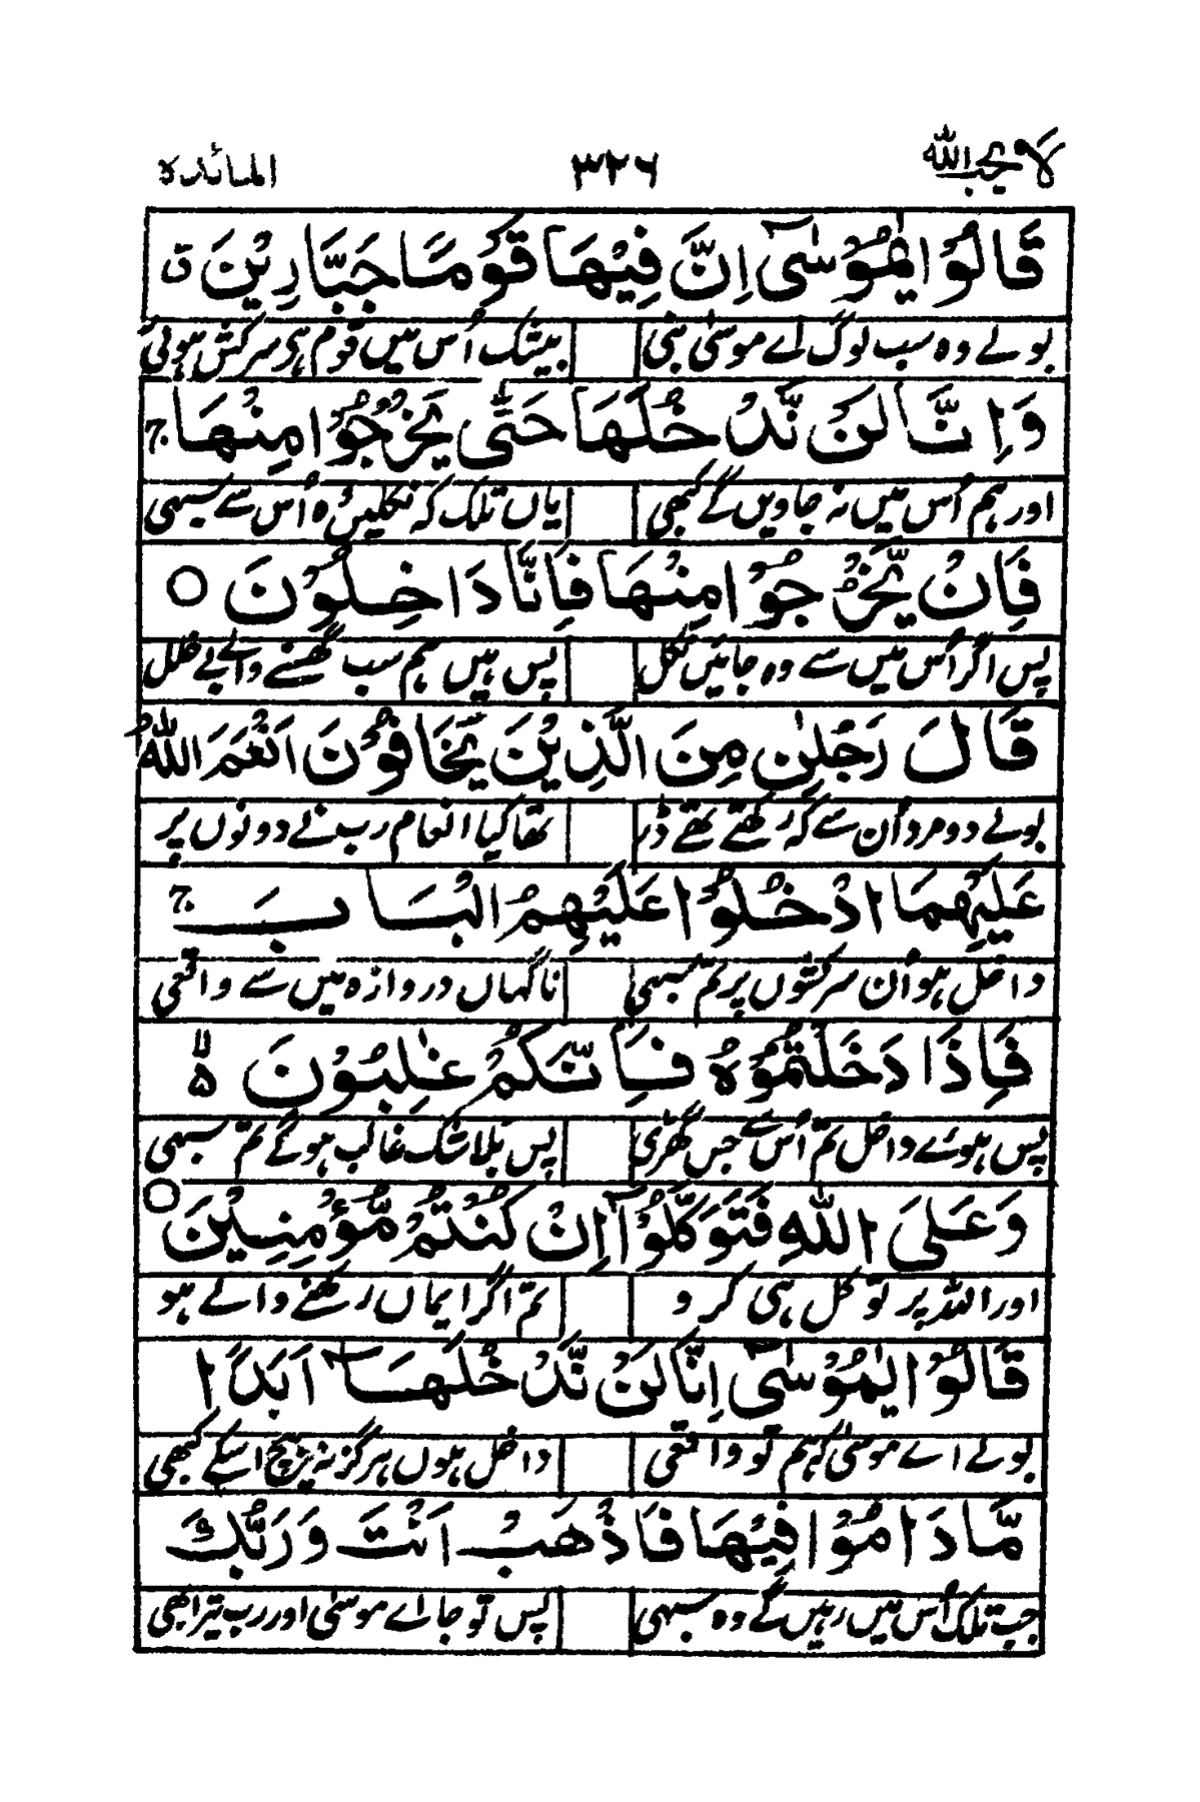 لا یحب اللہ ۳۲۶ المائدہ ۵
قَالُوْا یٰمُوْسٰۤی اِنَّ فِیْهَا قَوْمًا جَبَّارِیْنَ ق
بولے وہ سب لوگ اے موسیٰ نبی بیشک اُس میں قوم ہے سرکش ہوئی
وَاِنَّا لَنْ نَّدْخُلَهَا حَتّٰی یَخْرُجُوْا مِنْهَا ج
اور ہم اُس میں نہ جاویں گے کبھی یاں تلک کہ نکلیں وہ اُس سے سبھی
فَاِنْ یَّخْرُجُوْا مِنْهَا فَاِنَّا دَاخِلُوْنَ ○
پس اگر اُس میں سے وہ جائیں نکل پس ہیں ہم سب گھسنے والے بے خلل
قَالَ رَجُلٰنِ مِنَ الَّذِیْنَ یَخَافُوْنَ اَنْعَمَ اللّٰهُ
بولے دو مرد اُن سے کہ رکھتے تھے ڈر تھا کیا انعام رب نے دونوں پر
عَلَیْهِمَا ادْخُلُوْا عَلَیْهِمُ الْبَابَ ج
داخل ہو اُن سرکشوں پر تم سبھی ناگہاں دروازہ میں سے واقعی
فَاِذَا دَخَلْتُمُوْهُ فَاِنَّكُمْ غٰلِبُوْنَ ۵
پس ہوئے داخل تم اُس سے جس گھڑی پس بلاشک غالب ہوگے تم سبھی
وَعَلَی اللّٰهِ فَتَوَكَّلُوْۤا اِنْ كُنْتُمْ مُّؤْمِنِیْنَ ○
اور اللہ پر توکل ہی کرو تم اگر ایماں رکھنے والے ہو
قَالُوْا یٰمُوْسٰۤی اِنَّا لَنْ نَّدْخُلَهَاۤ اَبَدًا
بولے اے موسیٰ کہ ہم تو واقعی داخل ہوں ہرگز نہ بیچ اسکے کبھی
مَّا دَامُوْا فِیْهَا فَاذْهَبْ اَنْتَ وَرَبُّكَ
جب تلک اُس میں رہیں گے وہ سبھی پس تو جا اے موسیٰ اور رب تیرا بھی